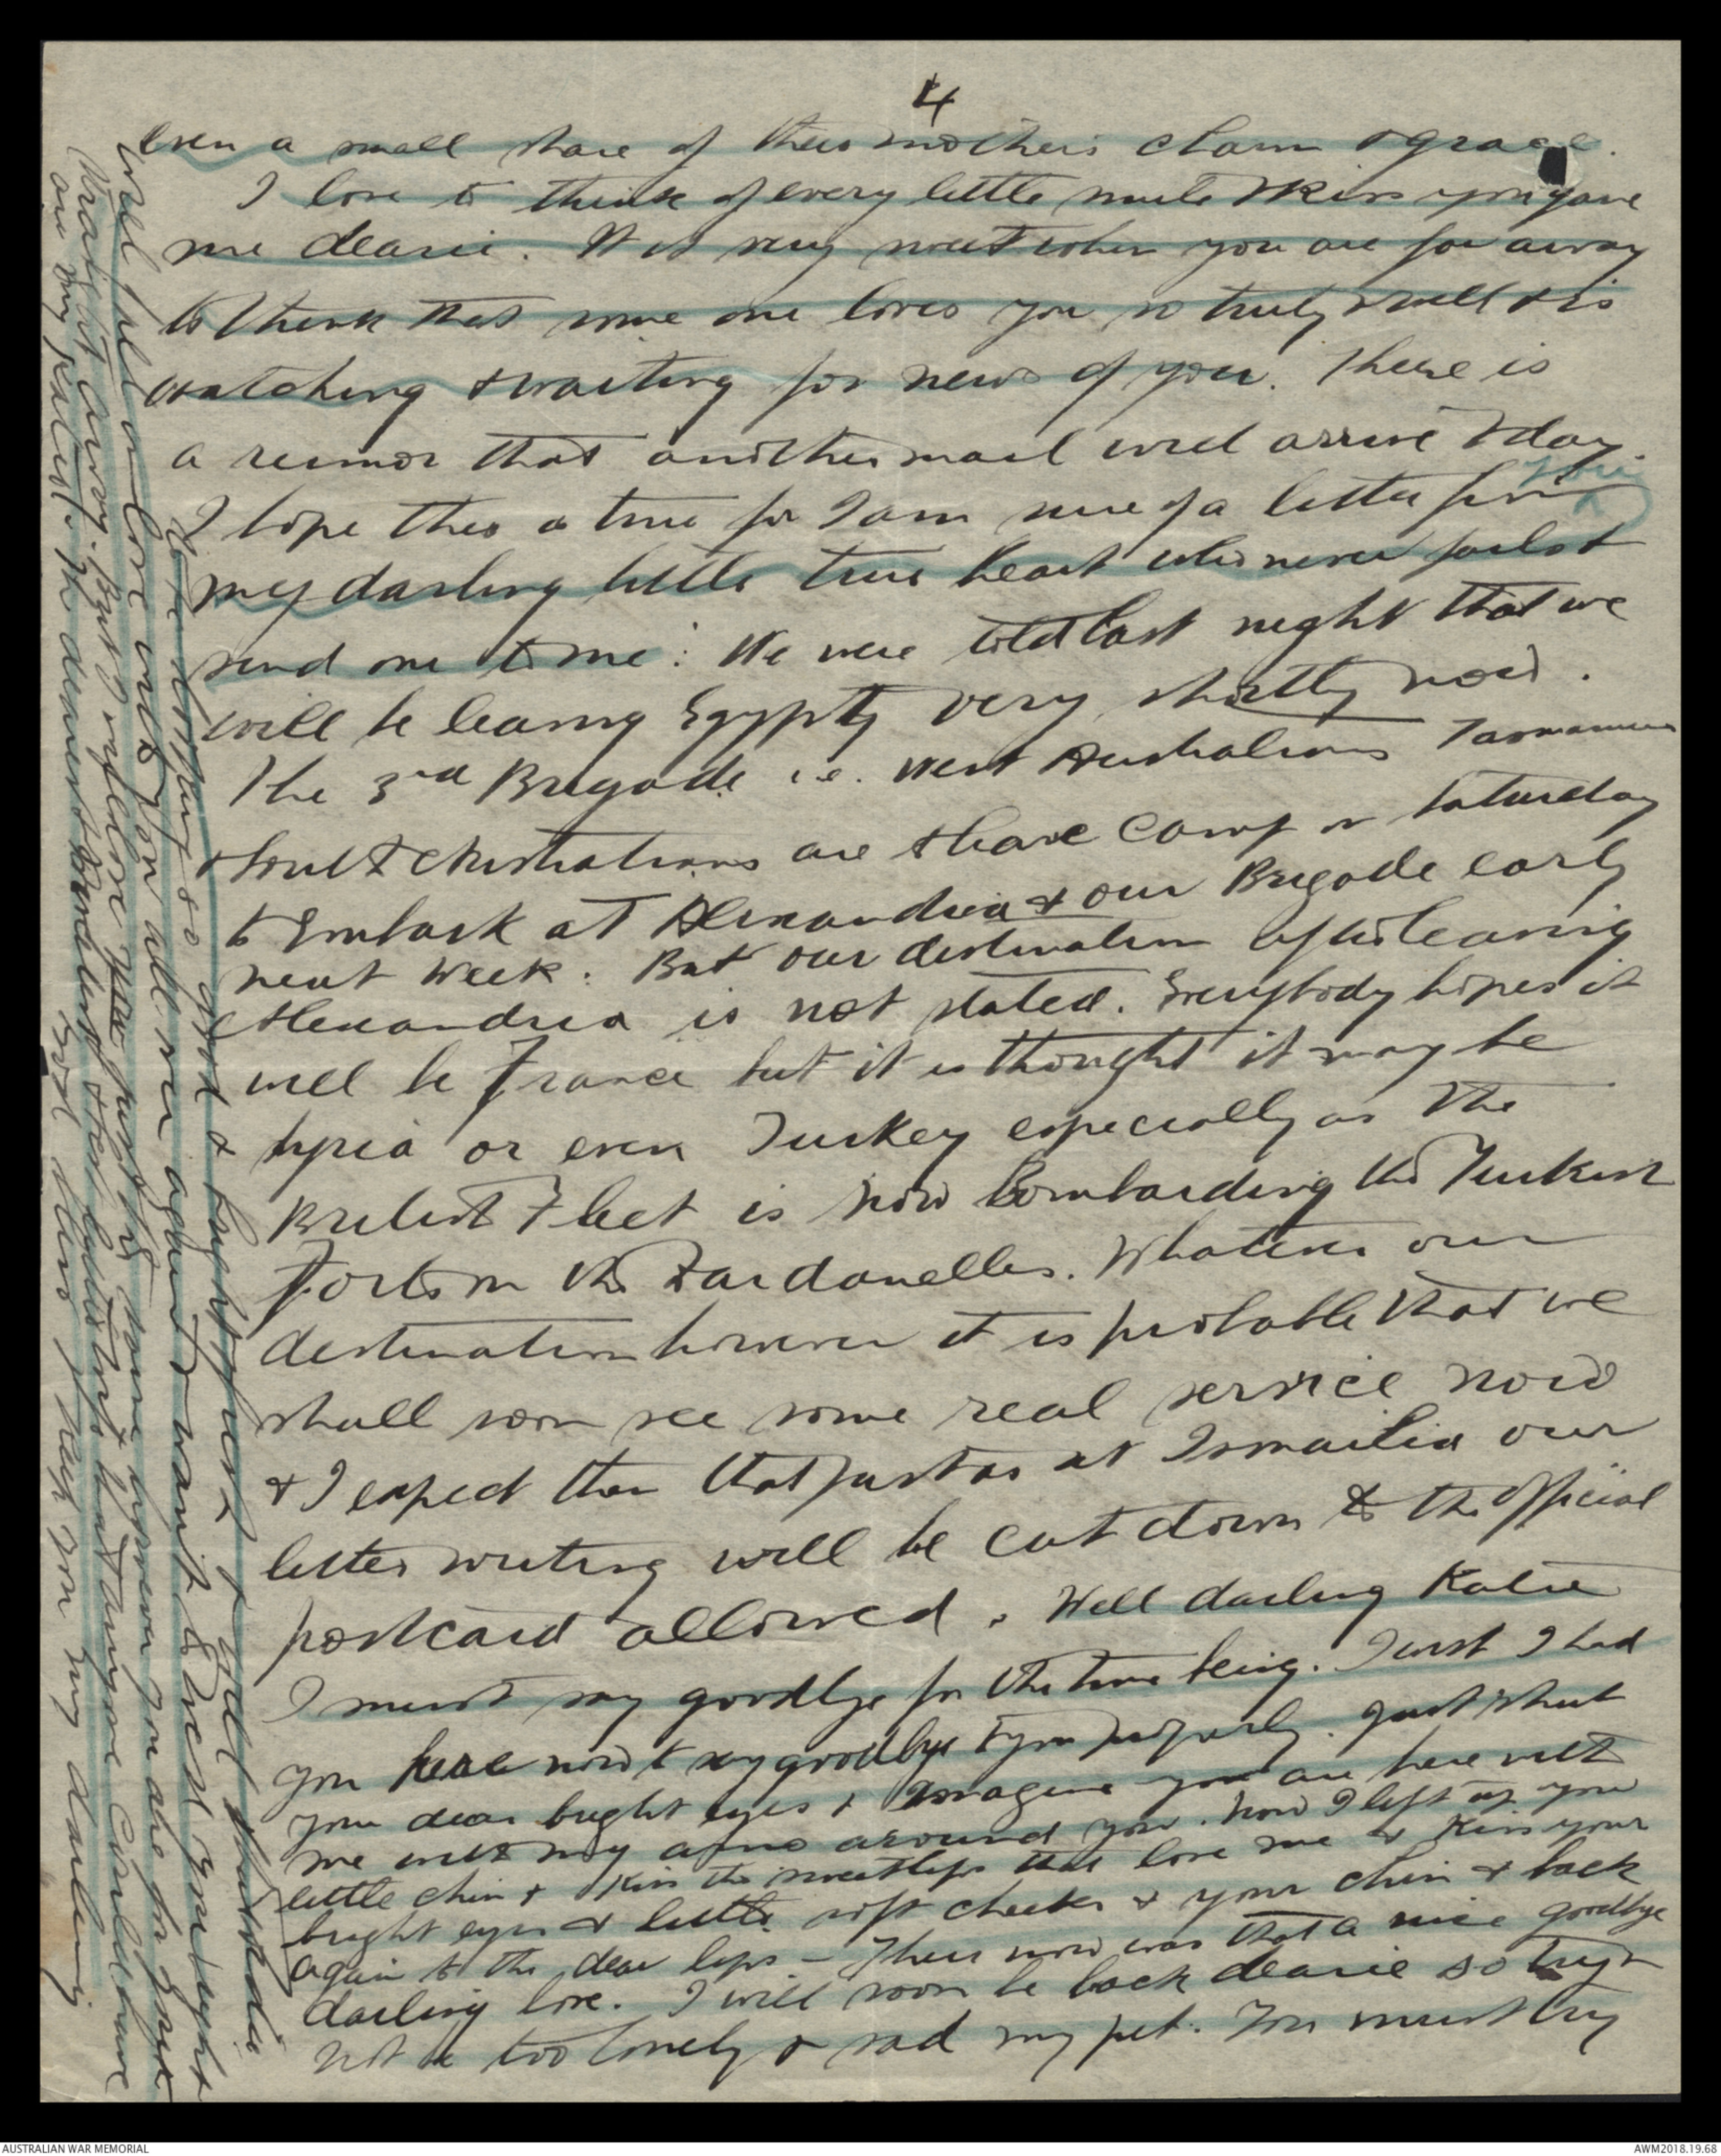 4
even a small share of their mothers charm & grace.
I love to think of every little smile & kiss you gave
me dearie. It is very sweet when you are far away
to think that some one loves you so truly & well & is
watching & waiting for news of you. There is
a rumor that another mail will arrive today
I hope this is true for I am sure of a letter from
my darling little true heart who never fails to
send one to me. We were told last night that we
will be leaving Egypt very shortly now.
The 3rd Brigade i.e. West Australians Tasmanians
& South Australians are to leave Camp on Saturday
to Embark at Alexandria & our Brigade early
next week. But our destination after leaving
Alexandria is not stated. Everybody hopes it
will be France but it is thought it may be
Syria or even Turkey especially as the
British Fleet is now bombarding the Turkish
Forts in the Dardanelles. Whatever our
destination however it is probable that we
shall soon see some real service now
& I expect then that just as at Ismailia our
letter writing will be cut down to the official
postcard allowed. Well darling Katie
I must say goodbye for the time being. I wish I had
you here now to say goodbye to you properly. Just shut
your dear bright eyes & imagine you are here with
me with my arms around you. Now I lift up your
little chin & kiss the sweet lips that love me & kiss your
bright eyes & little soft cheeks & your chin & back
again to the dear lips – There now was that a nice goodbye
darling love. I will soon be back dearie so try &
not be too lonely & sad my pet. You must try
to be
good & bright
fall in love with you all over again & want to
away. But I
the dearest &
God bless & keep you my darling